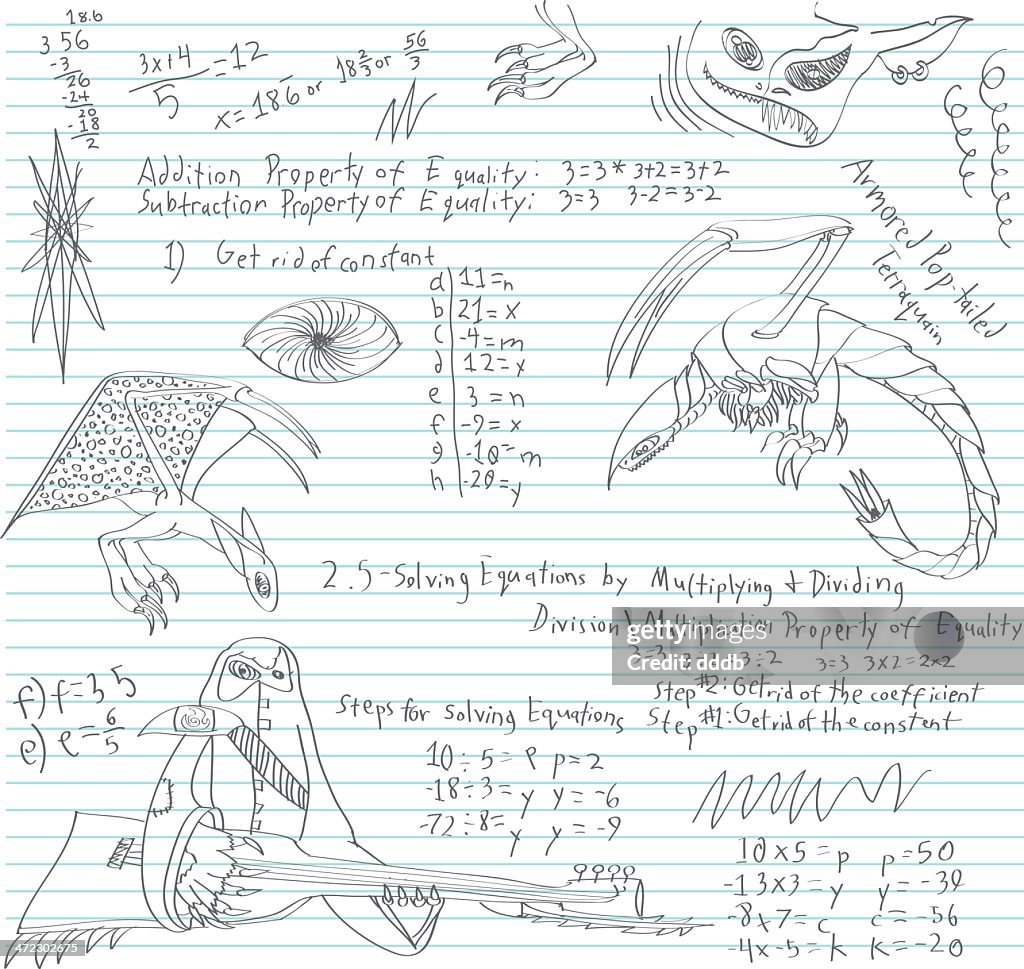 18.6
3 56
-3
26
-24
20
-18
2
3x+4 =12
5
x=186 or 18 2/3 or 56/3
Addition Property of Equality: 3=3 * 3+2=3+2
Subtraction Property of Equality: 3=3 3-2=3-2
Armored Pop-tailed
Terraquain
1) Get rid of constant
a 11=n
b 21=x
c -4=m
d 12=x
e 3=n
f -9=x
g -10=m
h -20=y
2.5-Solving Equations by Multiplying + Dividing
Division\ Multiplication Property of Equality
3=3 3÷2 3=3 3x2=2x2
gettyimages
Credit: dddb
Step #2: Get rid of the coefficient
Steps for Solving Equations Step #1: Get rid of the constent
f) f=35
e) e=6/5
10÷5=p p=2
-18÷3=y y=-6
-72÷8=y y=-9
10x5=p p=50
-13x3=y y=-39
-8x7=c c=-56
-4x-5=k k=-20
472302675